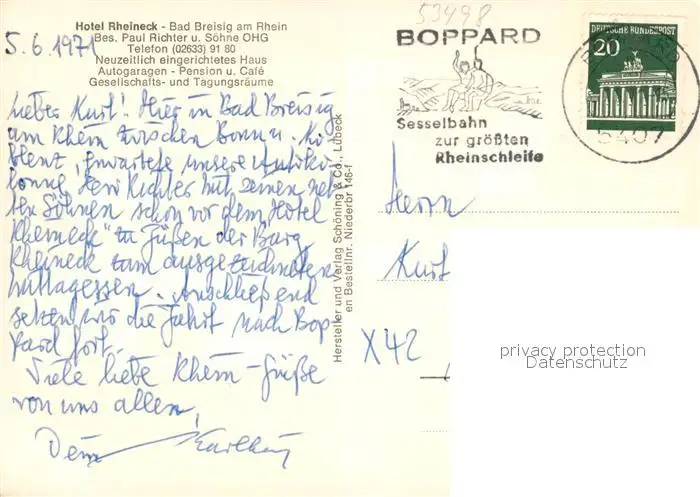 Hotel Rheineck - Bad Breisig am Rhein
Bes. Paul Richter u. Söhne OHG
Telefon (02633) 91 80
Neuzeitlich eingerichtetes Haus
Autogaragen - Pension u. Café
Gesellschafts- und Tagungsräume
5.6.1971
Lieber Kurt! Hier in Bad Breisig
am Rhein zwischen Bonn u. Ko
blenz, erwartete unsere
Herr Richter mit seinen net
ten Söhnen schon vor dem Hotel
Rheineck" zu Füßen der Burg
Rheineck zum ausgezeichneten
Mittagessen. Anschließend
setzen wir die Fahrt nach Bop
pard fort.
Viele liebe Rhein-Grüße
von uns allen,
Dein
Hersteller und Verlag Schöning & Co., Lübeck
en Bestellnr. Niederbr 146-f
53498
BOPPARD
Sesselbahn
zur größten
Rheinschleife
DEUTSCHE BUNDESPOST
20
5407
Herrn
Kurt
X42
privacy protection
Datenschutz